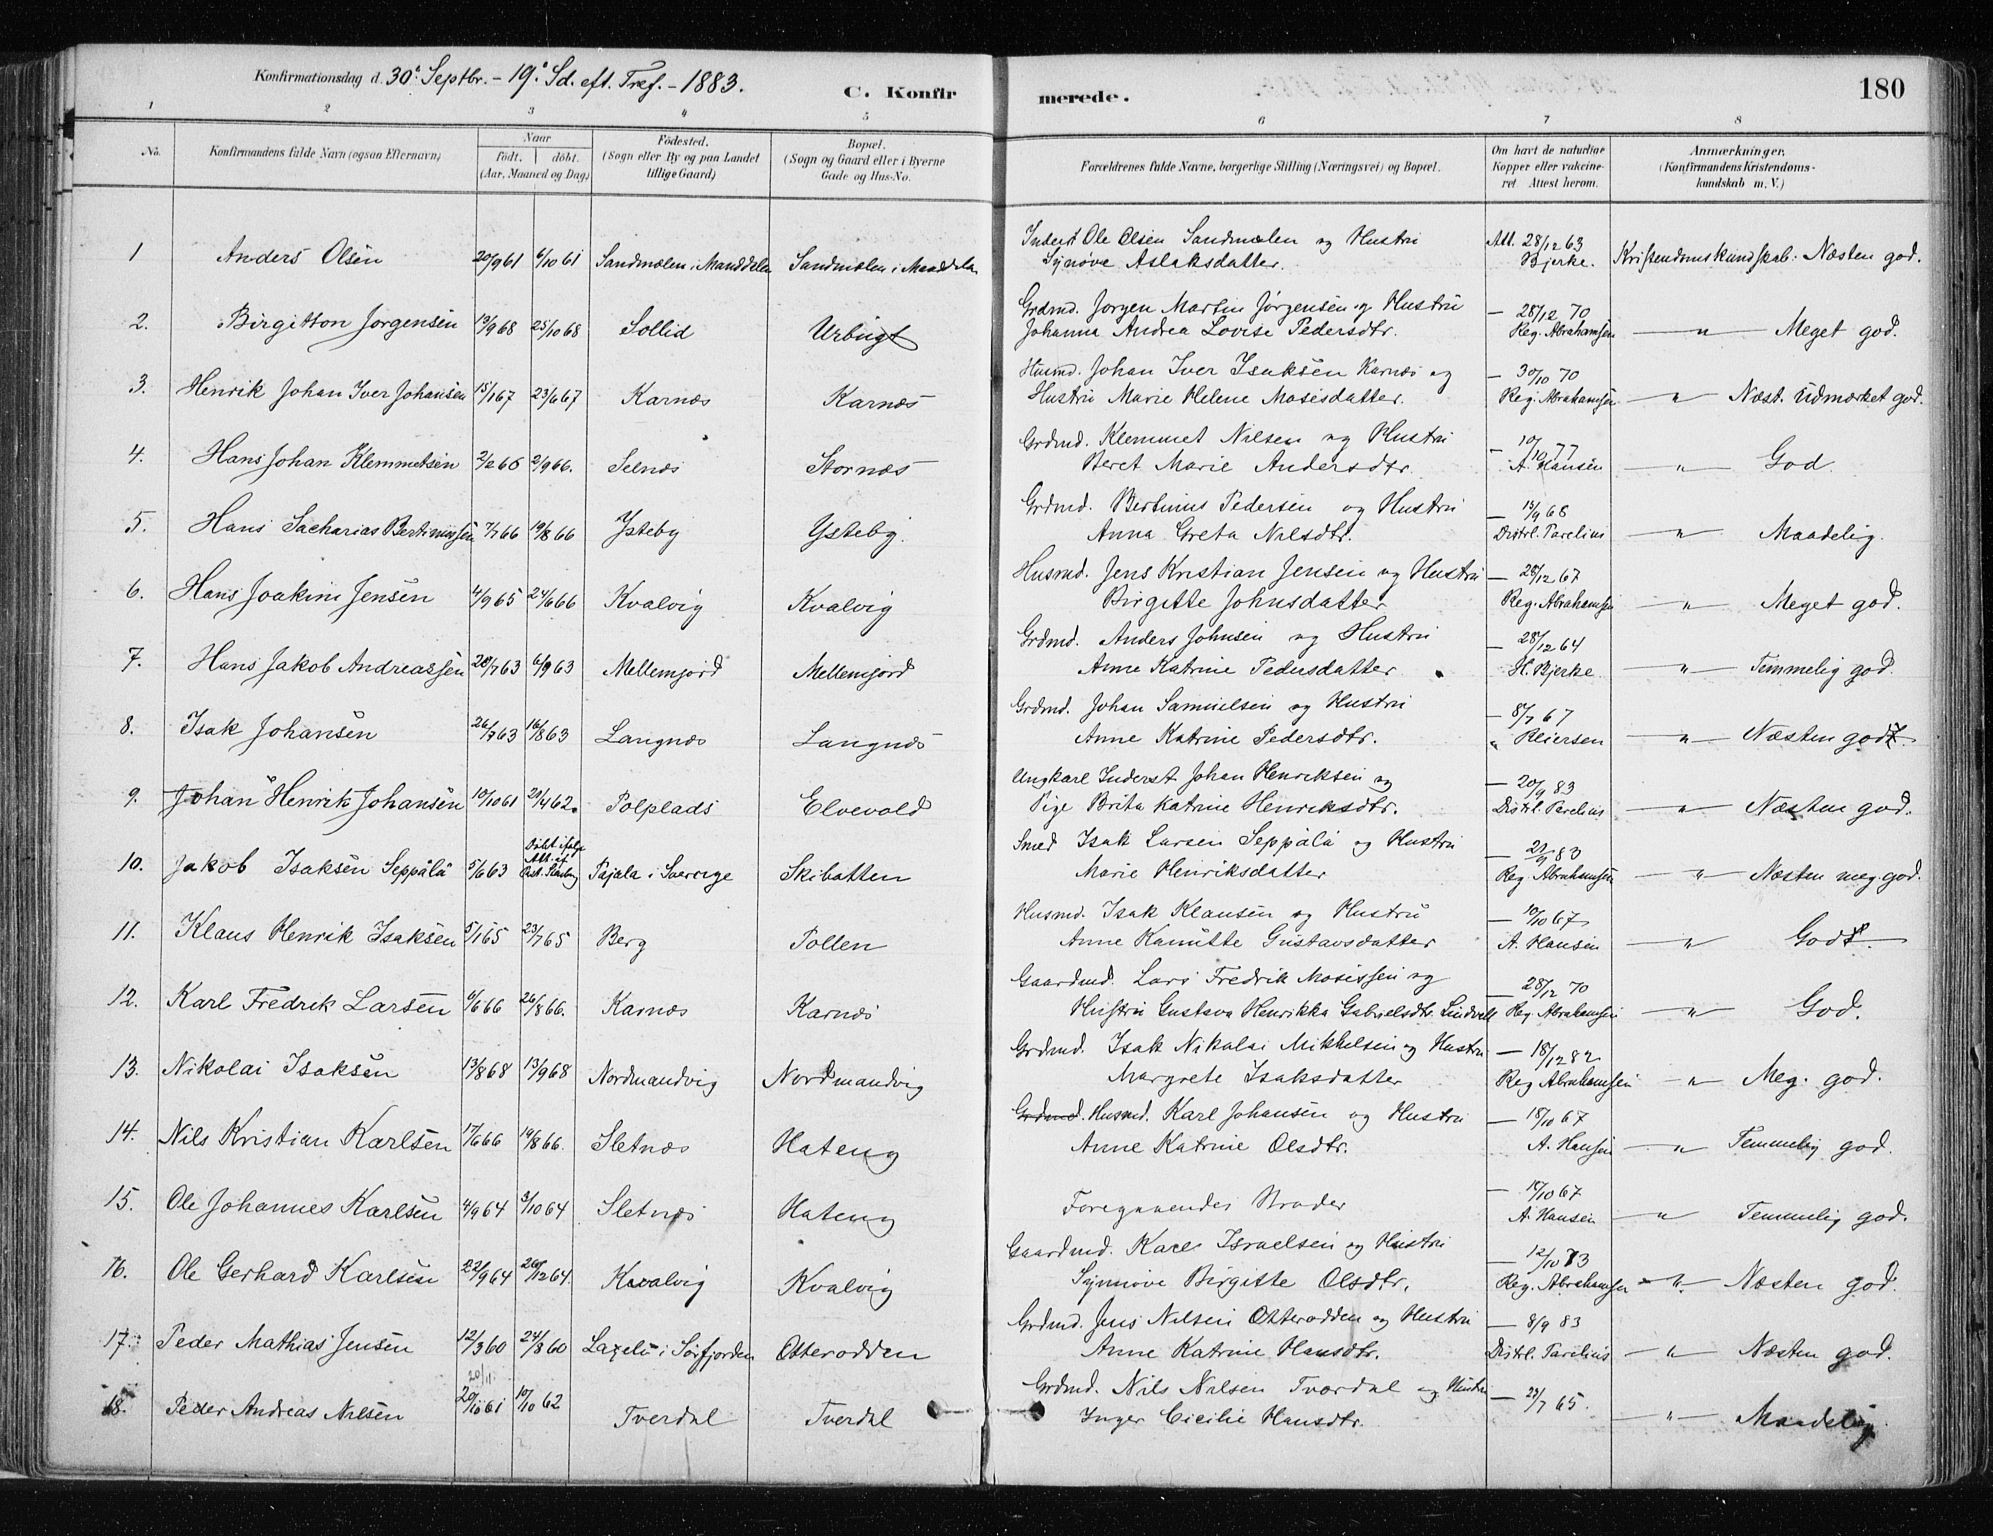 Konfirmationsdag d. 30te Septbr. - 19. Sd. eft. Tref. - 1883.
C. Konfirmerede.
180
1 2 3 4 5 6 7 8
No. Konfirmandens fulde Navn (ogsaa Efternavn) Naar født. døbt. (Aar, Maaned og Dag) Fødested. (Sogn eller By og paa Landet tillige Gaard) Bopæl. (Sogn og Gaard eller i Byerne Gade og Hus-No. Forældrenes fulde Navne, borgerlige Stilling (Næringsvei) og Bopæl. Om havt de naturlige Kopper eller vakcineret Attest herom. Anmærkninger, (Konfirmandens Kristendomskundskab m. V.)
1 Anders Olsen 20/9 61 6/10 61 Sandmælen i Manddalen Sandmælen i Manddalen Inderst Ole Olsen Sandmælen og Hustru Att. 28/12 63
Synøve Aslaksdatter. Bjerke. Kristendomskundskab: Næsten god.
2. Birgitton Jørgensen 13/9 68 25/10 68 Sollid Urbugt Grdmd. Jørgen Martin Jørgensen og Hustru — 28/12 70
Johanna Andrea Lovise Pedersdtr. Reg. Abrahamsen — " — Meget god.
3. Henrik Johan Iver Johansen 15/1 67 23/6 67 Karnæs Karnæs Husmd. Johan Iver Isaksen Karnæs og — 30/10 70
Hustru Marie Helene Mosisdatter. Reg. Abrahamsen — " — Næst. udmærket god.
4. Hans Johan Klemmetsen 2/2 66 2/9 66. Selnæs Stornæs Grdmd. Klemmet Nilsen og Hustru — 10/10 77
Beret Marie Andersdtr. A. Hansen — " — God.
5. Hans Sacharias Bertinussen 7/7 66 19/8 66 Ysteby Ysteby. Grdmd. Bertinus Pedersen og Hustru — 13/9 68
Anna Greta Nilsdtr. Distrl. Parelius — " — Maadelig.
6. Hans Joakim Jensen 4/9 65 24/6 66 Kvalvig Kvalvig Husmd. Jens Kristian Jensen og Hustru — 28/12 67
Birgitte Johnsdatter Reg. Abrahamsen — " — Meget god.
7. Hans Jakob Andreassen 28/7 63 6/9 63 Mellemjord Mellemjord Grdmd. Anders Johnsen og Hustru — 28/12 64
Anne Katrine Pedersdatter. H. Bjerke. — " — Temmelig god.
8. Isak Johansen 26/7 63 16/8 63 Langnæs Langnæs Grdmd. Johan Samuelsen og Hustru — 8/7 67
Anne Katrine Pedersdtr. " Reiersen — " — Næsten god.
9. Johan Henrik Johansen 10/10 61 21/4 62. Polplads Elvevold Ungkarl Inderst Johan Henriksen og — 20/9 83
Pige Brita Katrine Henriksdtr. Distrl. Parelius — " — Næsten god.
10. Jakob Isaksen Seppälä 5/6 63 Døbt ifølge Att. af Pajala i Sverige Skibotten Smed Isak Larsen Seppälä og Hustru — 21/9 83
Marie Henriksdatter Reg. Abrahamsen — " — Næsten meg. god.
11. Klaus Henrik Isaksen 5/1 65 23/7 65 Berg Pollen Husmd. Isak Klausen og Hustru — 10/10 67
Anne Kanutte Gustavsdatter A. Hansen — " — God.
12. Karl Fredrik Larsen 6/6 66 26/8 66. Karnæs Karnæs Gaardmd. Lars Fredrik Mosissen og — 28/12 70
Hustru Gustava Henrikka Gabrielsdtr. Lindvall Reg. Abrahamsen — " — God.
13. Nikolai Isaksen 13/8 68 13/9 68 Nordmandvig Nordmandvig Grdmd. Isak Nikolai Mikkelsen og Hustru — 18/12 82
Margrete Isaksdatter Reg. Abrahamsen — " — Meg. god.
14. Nils Kristian Karlsen 17/6 66 19/8 66. Sletnæs Hateng Grdmd. Husmd. Karl Johansen og Hustru — 18/10 67
Anne Katrine Olsdtr. A. Hansen — " — Temmelig god.
15. Ole Johannes Karlsen 4/9 64 3/10 64 Sletnæs Hateng Foregaaendes Broder — 18/10 67
A. Hansen — " — Temmelig god.
16. Ole Gerhard Karlsen 22/9 64 26/12 64. Kvalvig Kvalvig Gaardmd. Karel Israelsen og Hustru — 12/10 73
Synnøve Birgitte Olsdtr. Reg. Abrahamsen — " — Næsten god.
17. Peder Mathias Jensen 12/3 60 24/3 60 i Sørfjorden Otterodden Grdmd. Jens Nilsen Otterodden og Hustru — 8/9 83
Anne Katrine Hansdtr. Distrl. Parelius — " — Næsten god.
20/11
18. Peder Andreas Nilsen 20/10 61 19/10 62 Tverdal Tverdal Grdmd. Nils Nilsen Tverdal og Hustru — 23/7 65.
Inger Cicilie Hansdtr. — " — Maadelig.